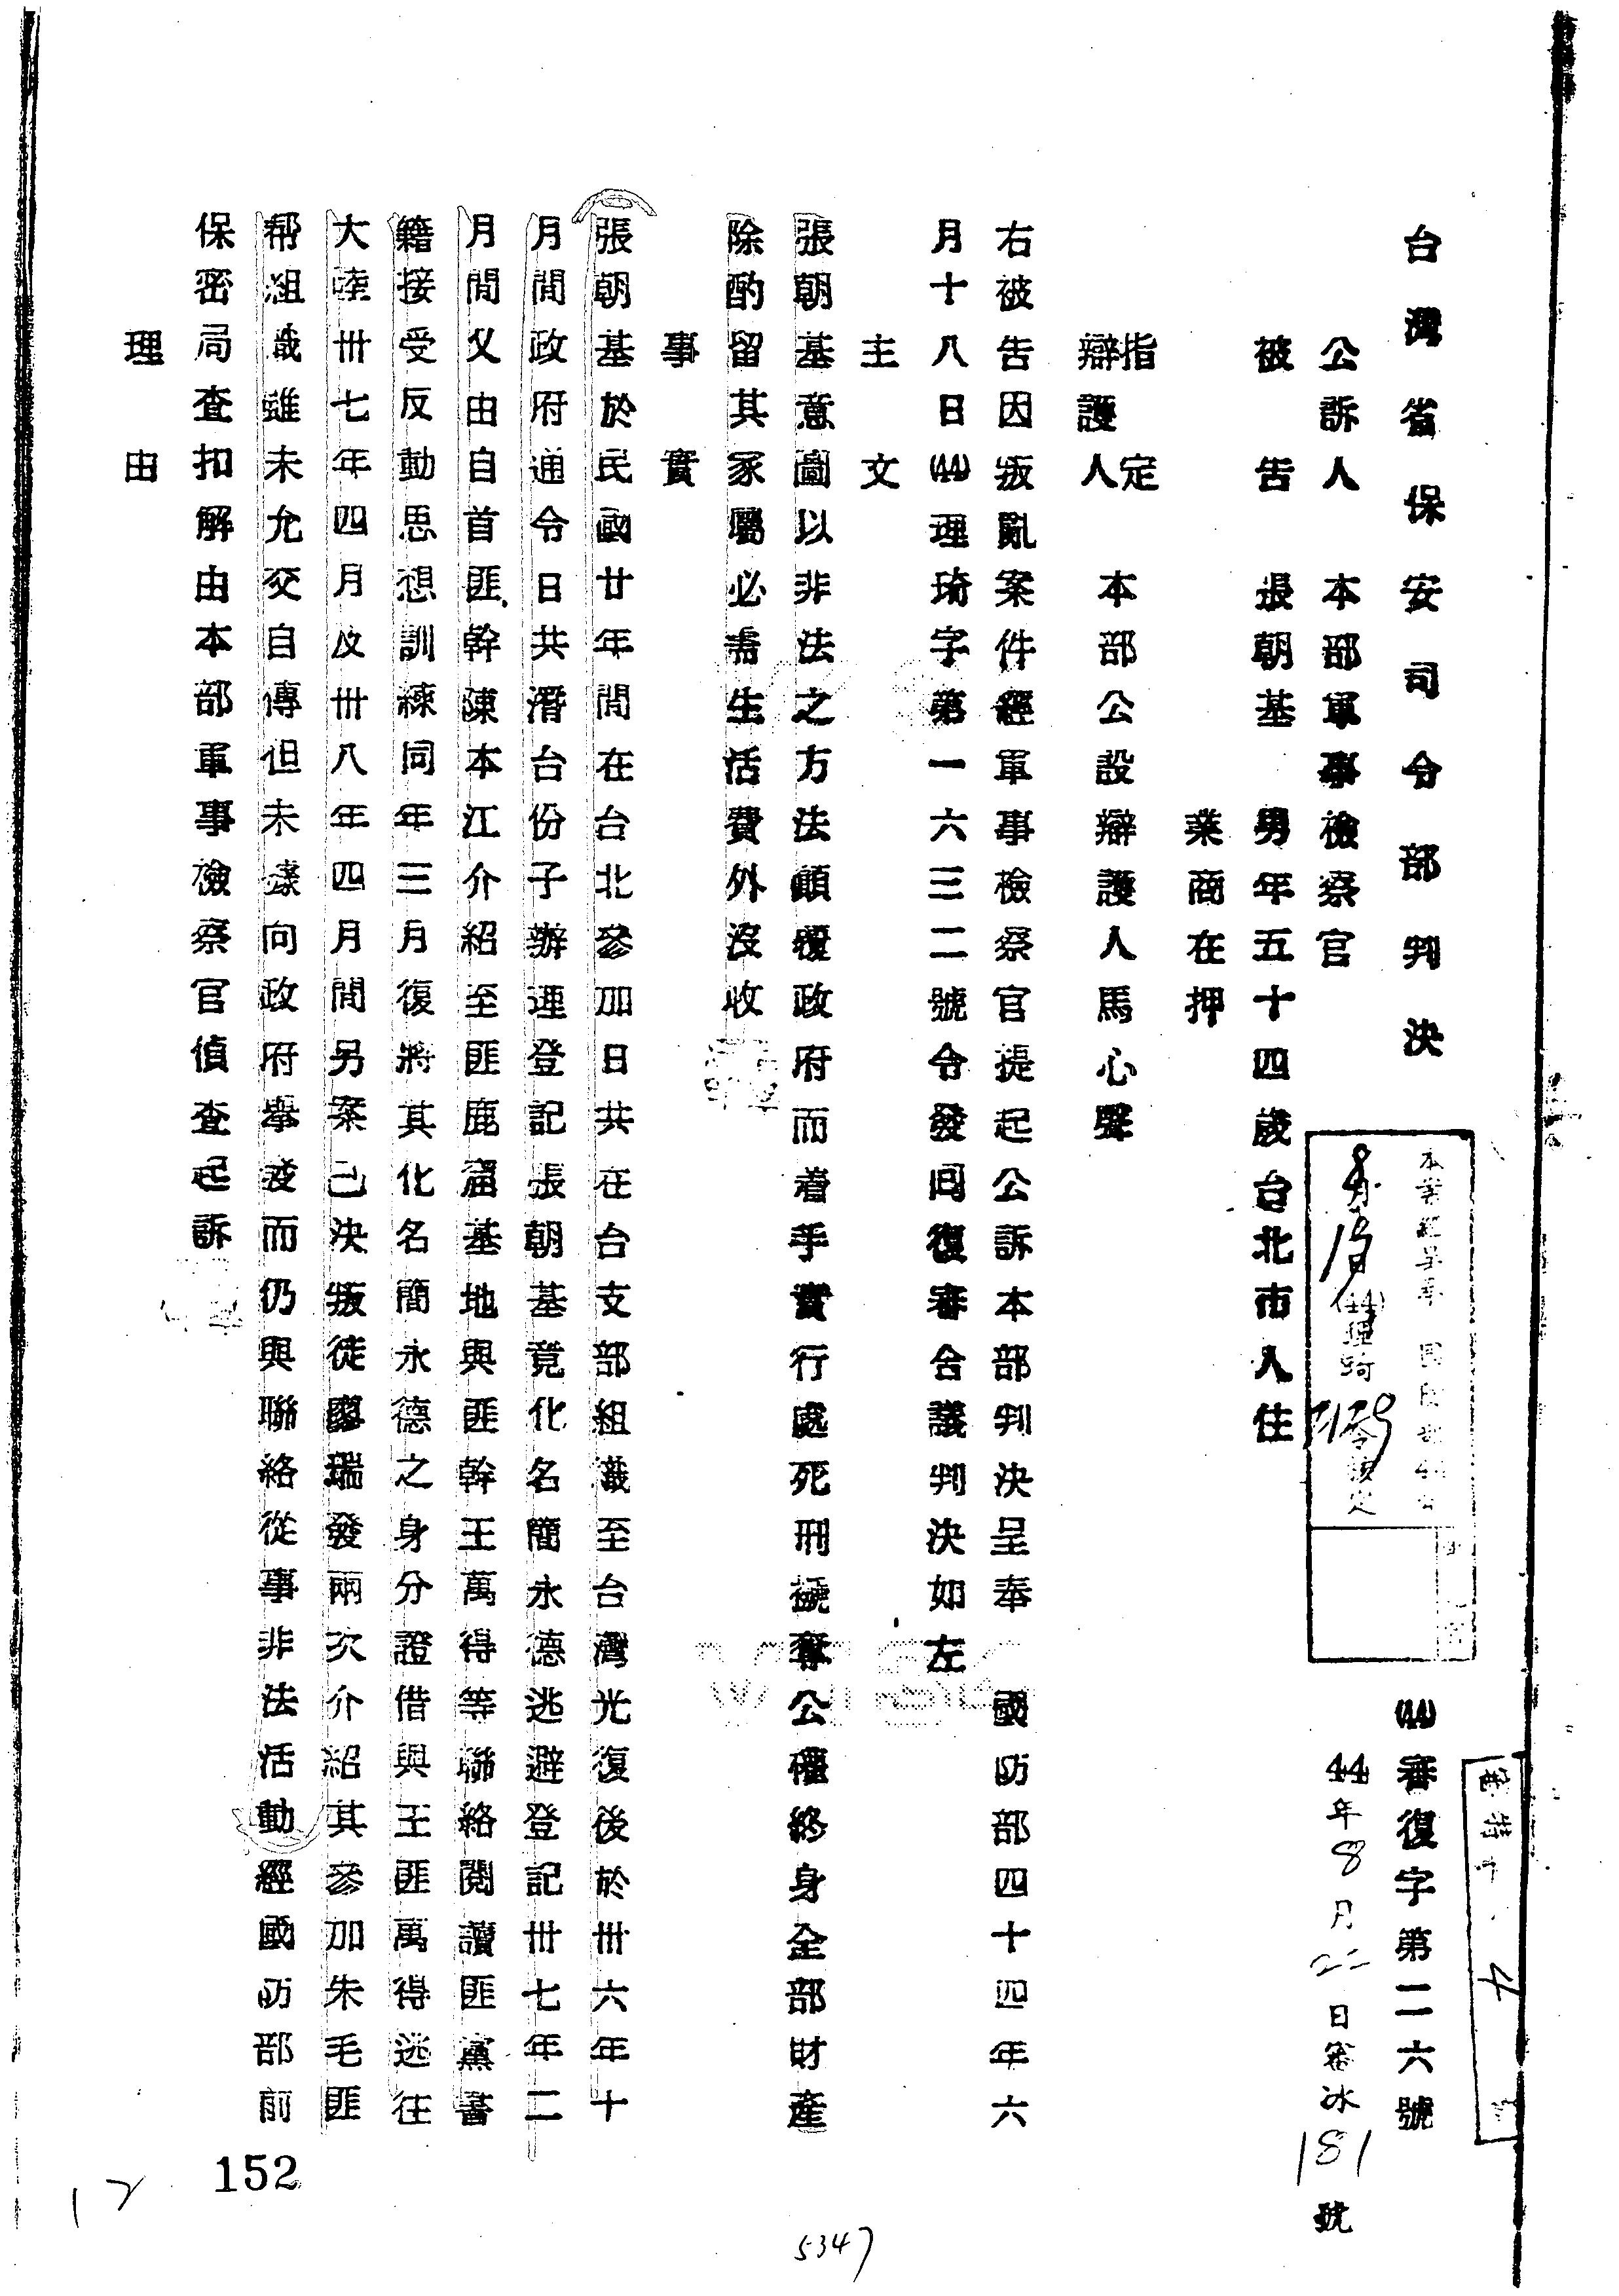 台灣省保安司令部判決
(44)審復字第二六號
44年8月22日審冰181號
公訴人 本部軍事檢察官
被告 張朝基 男年五十四歲台北市人住
業商在押
指定
辯護人 本部公設辯護人馬心聲
右被告因叛亂案件經軍事檢察官提起公訴本部判決呈奉 國防部四十四年六
月十八日(44)理琦字第一六三二號令發回復審合議判決如左
主文
張朝基意圖以非法之方法顛覆政府而着手實行處死刑褫奪公權終身全部財產
除酌留其家屬必需生活費外沒收
事實
張朝基於民國廿年間在台北參加日共在台支部組織至台灣光復後於卅六年十
月間政府通令日共潛台份子辦理登記張朝基竟化名簡永德逃避登記卅七年二
月間乂由自首匪幹陳本江介紹至匪鹿窟基地與匪幹王萬得等聯絡閱讀匪黨書
籍接受反動思想訓練同年三月復將其化名簡永德之身分證借與王匪萬得逃往
大陸卅七年四月及卅八年四月間另案已決叛徒廖瑞發兩次介紹其參加朱毛匪
幫組織雖未允交自傳但未據向政府舉發而仍與聯絡從事非法活動經國防部前
保密局查扣解由本部軍事檢察官偵查起訴
理由
152
12
5347